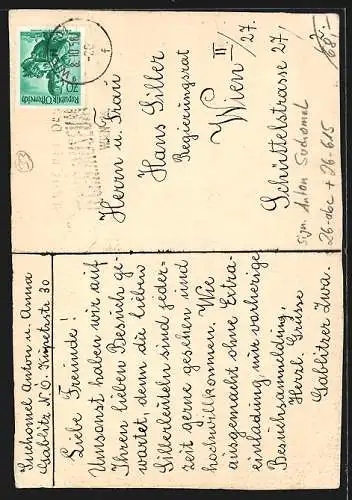 Suchomel Anton u. Anna
Gablitz N.Ö. Küpetzstr 30
Liebe Freunde!
Umsonst haben wir auf
Ihren lieben Besuch ge-
wartet, denn die lieben
Sillerleiteln sind jeder-
zeit gerne gesehen und
hochwillkommen. Wie
ausgemacht ohne Extra-
einladung nur vorherige
Besuchsanmeldung,
Herzl. Grüsse
Gablitzer Zwa.
Republik Österreich
Herrn u. Frau
Hans Siller
Regierungsrat
Wien II/27.
Schüttelstrasse 27/
68.-
sign. Anton Suchomel
26-abc + 76-615